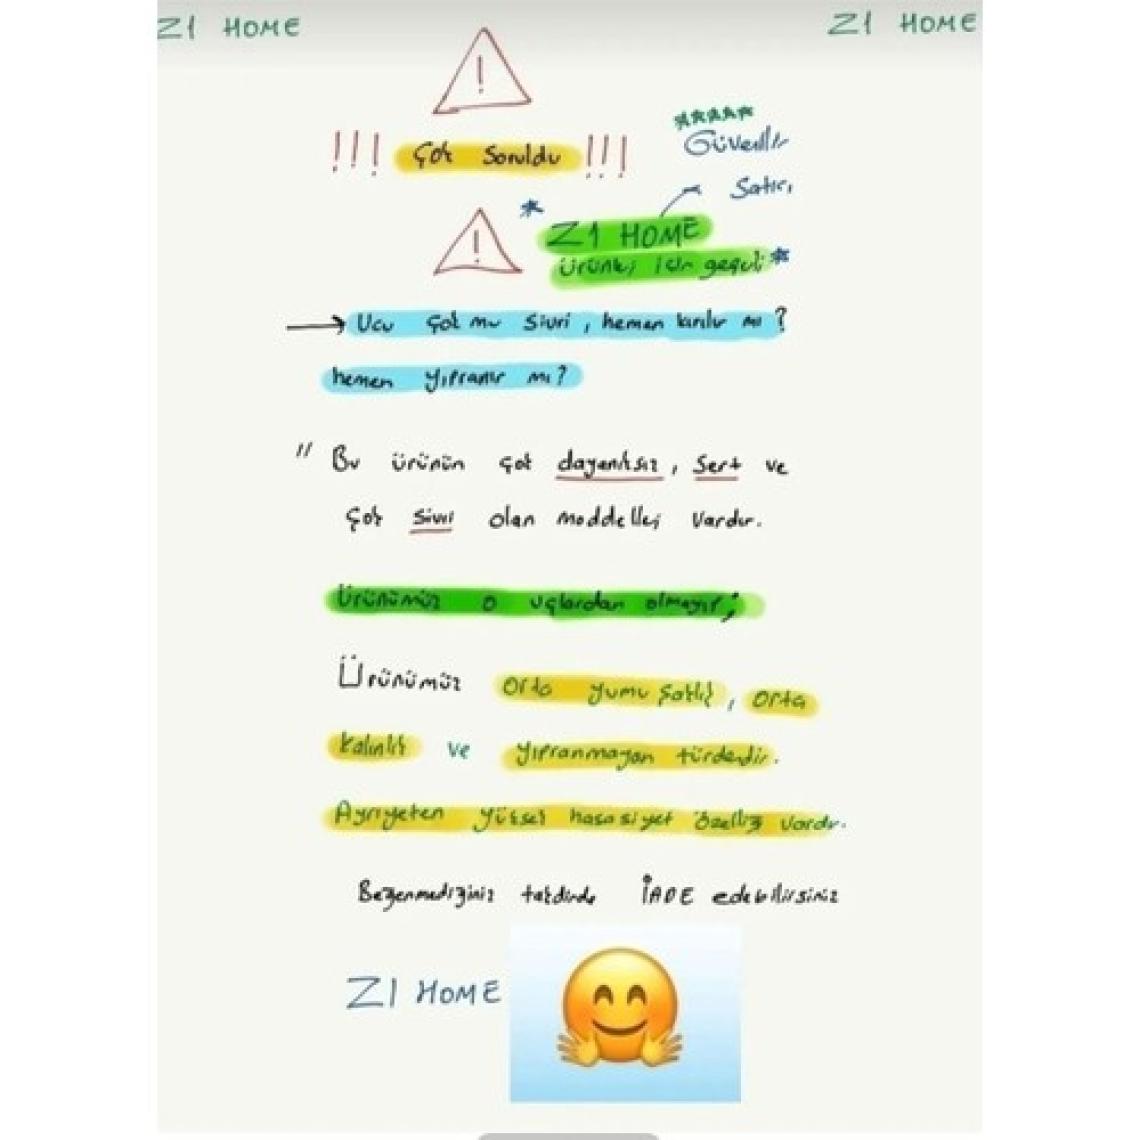 Z1 HOME
Z1 HOME
!
!!! Çok Soruldu !!!
Güvenilir
Satıcı
! * Z1 HOME
ürünleri için geçerli *
→ Ucu çok mu sivri, hemen kırılır mı?
hemen yıpranır mı?
" Bu ürünün çok dayanıksız, Sert ve
çok sivri olan modelleri vardır.
Ürünümüz o uçlardan olmayıp;
Ürünümüz orta yumuşaklık, orta
kalınlık ve yıpranmayan türdendir.
Ayrıyeten yüksek hassasiyet özelliği vardır.
Beğenmediğiniz takdirde İADE edebilirsiniz
Z1 HOME